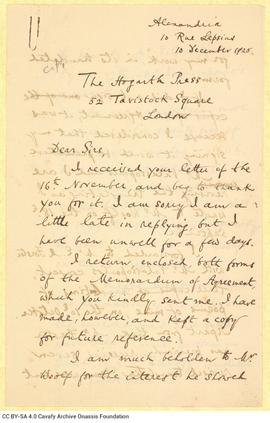 Alexandria
10 Rue Lepsius
10 December 1925.
The Hogarth Press
52 Tavistock Square
London
Dear Sirs,
I received your letter of the
16th November, and beg to thank
you for it. I am sorry I am a
little late in replying, but I
have been unwell for a few days.
I return, enclosed, both forms
of the Memorandum of Agreement,
which you kindly sent me. I have
made, however, and kept a copy
for future reference.
I am much beholden to Mr
Woolf for the interest he showed
CC BY-SA 4.0 Cavafy Archive Onassis Foundation